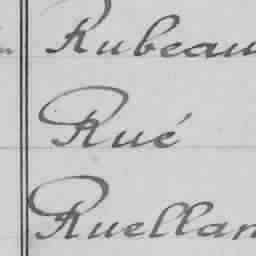 Rubeau
Rué
Ruellan